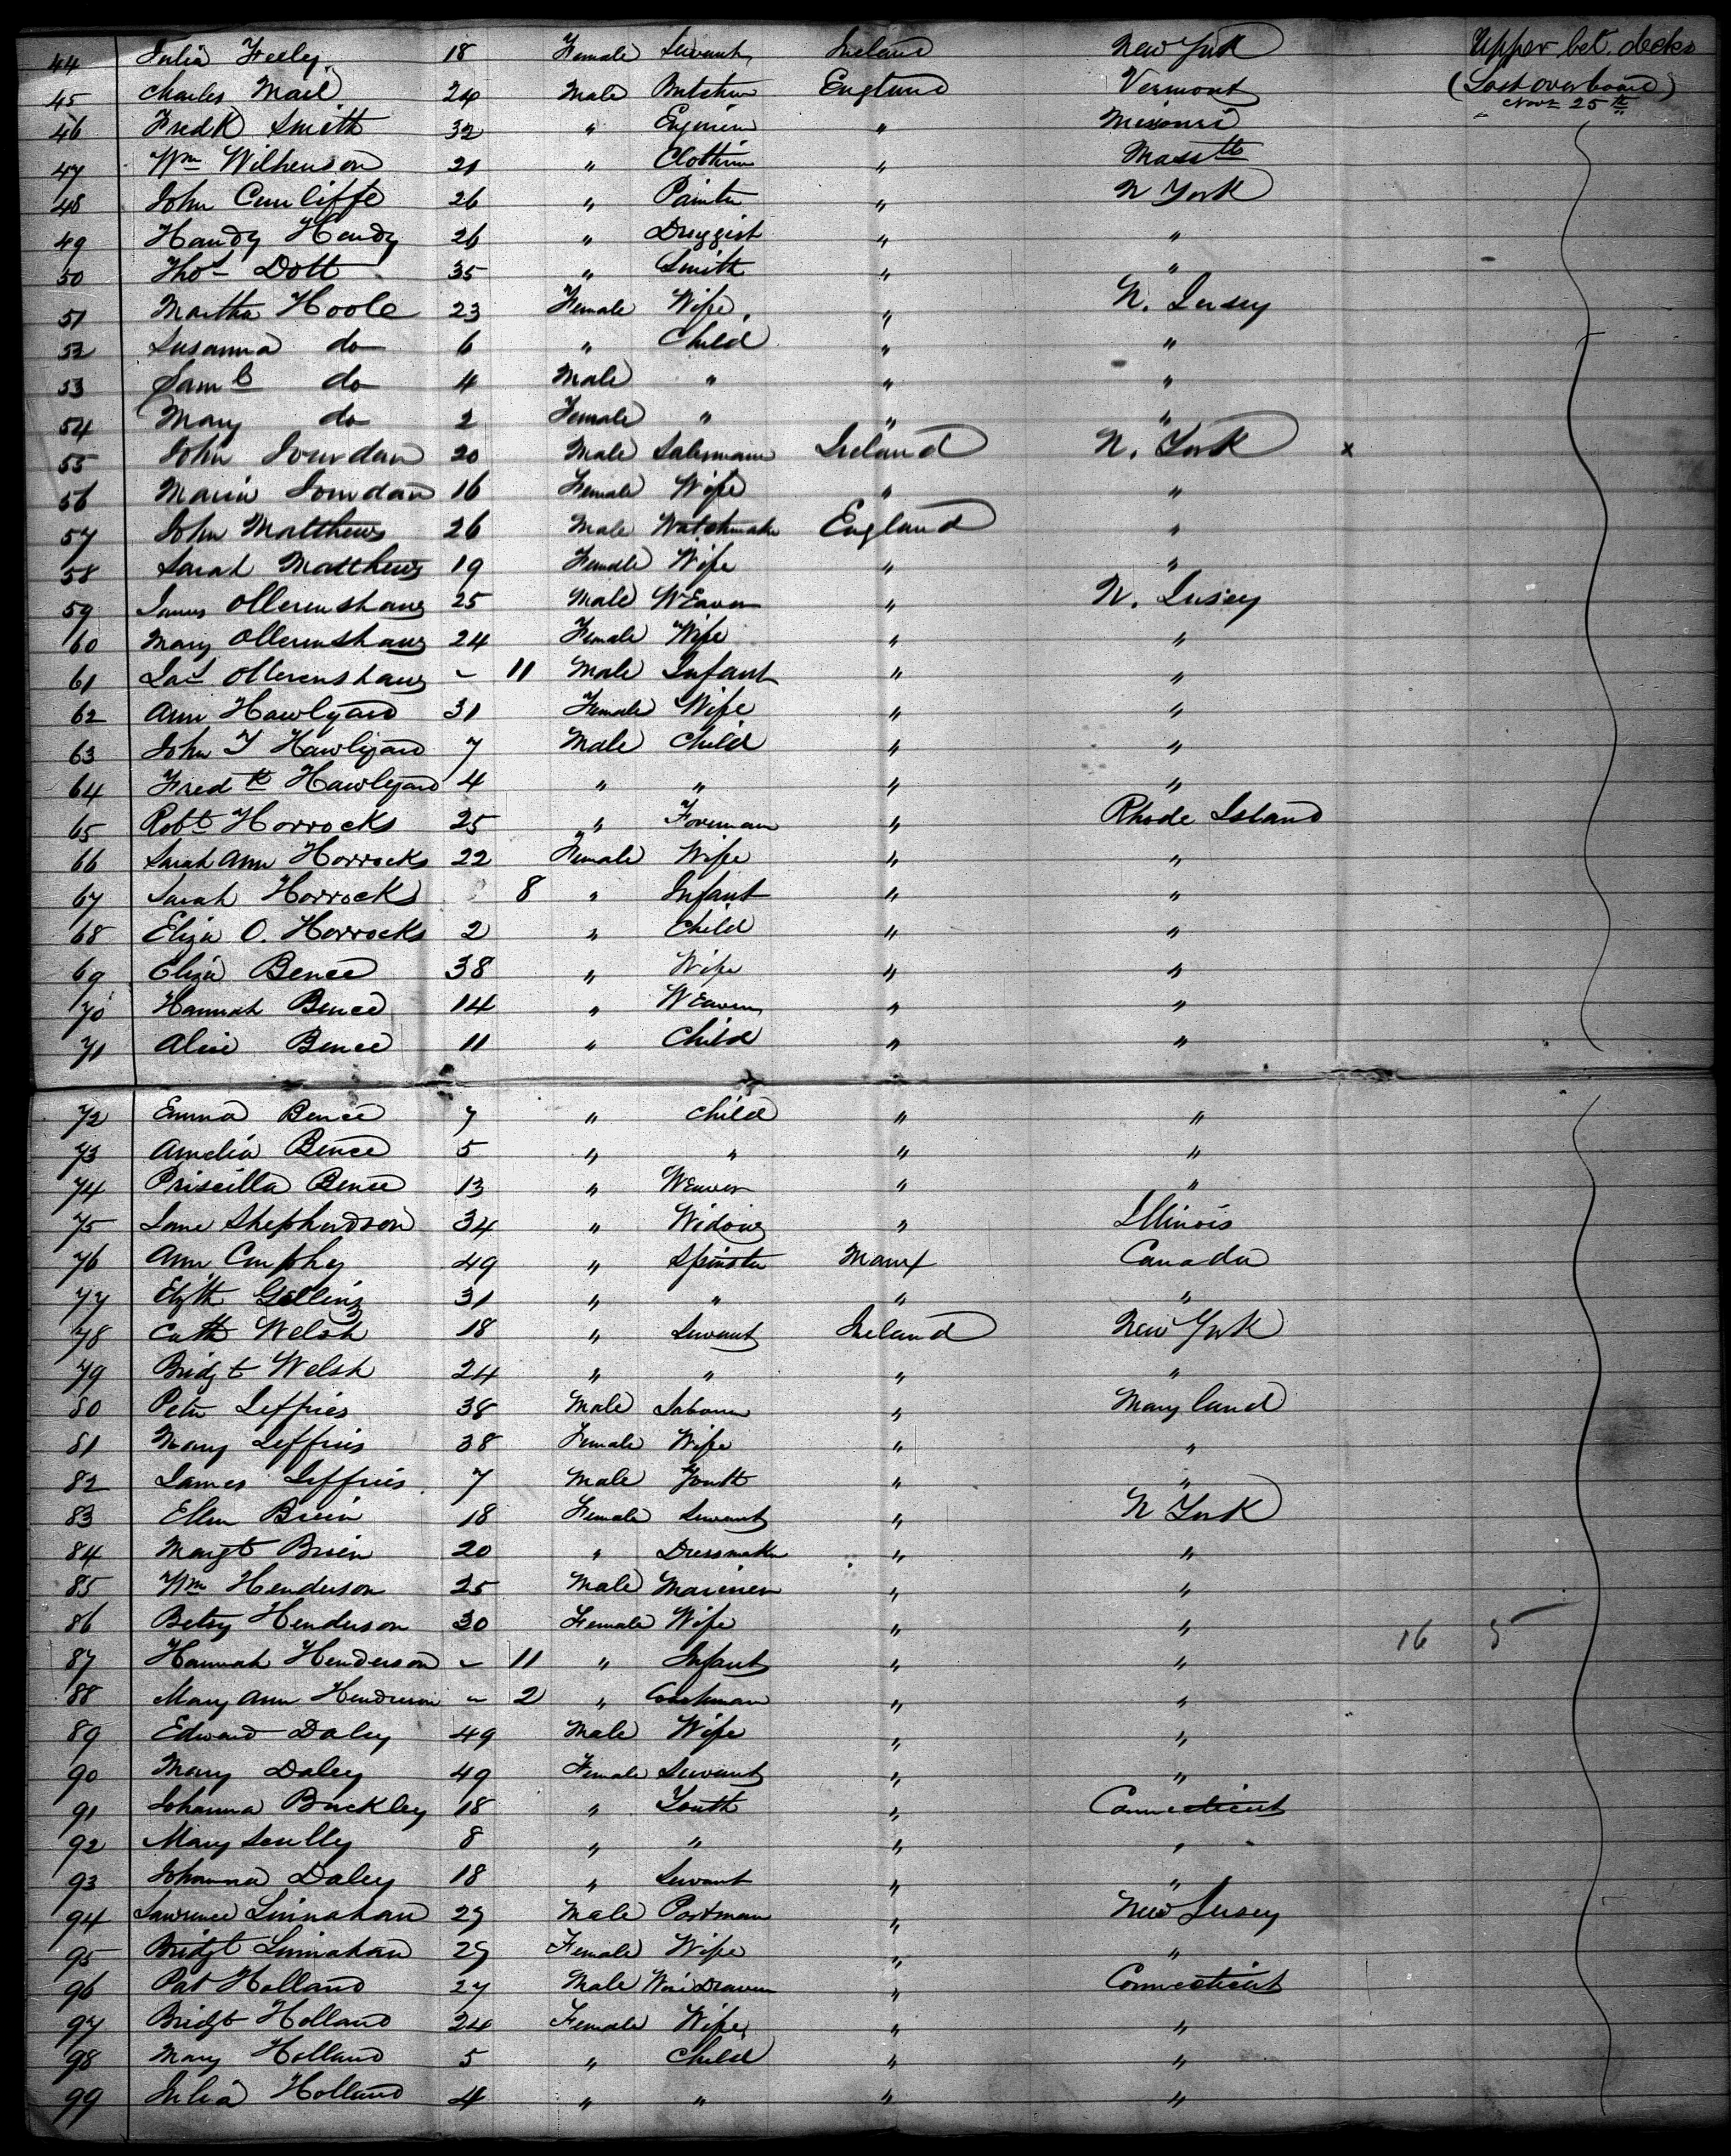 44 Julia Feeley 18 Female Servant Ireland New York Upper bet. decks
45 Charles Mail 24 Male Butcher England Vermont (Lost overboard)
Nov 25th
46 Fredk Smith 32 " Engineer " Missouri
47 Wm Wilkenson 21 " " Masstts
48 John Cunliffe 26 " Painter " N York
49 Handy Hendy 26 " Druggist " "
50 Thos Dott 35 " Smith " "
51 Martha Hoole 23 Female Wife " N. Jersey
52 Susanna do 6 " Child " "
53 Saml do 4 Male " " "
54 Mary do 2 Female " " "
55 John Jourdan 20 Male Salesman Ireland N. York x
56 Maria Jourdan 16 Female Wife " "
57 John Matthews 26 Male Watchmaker England "
58 Sarah Matthews 19 Female Wife " "
59 James Ollerenshaw 25 Male Weaver " N. Jersey
60 Mary Ollerenshaw 24 Female Wife " "
61 Jas Ollerenshaw - 11 Male Infant " "
62 Ann Hawlyard 31 Female Wife " "
63 John T Hawlyard 7 Male Child " "
64 Fredk Hawlyard 4 " " " "
65 Robt Horrocks 25 " Foreman " Rhode Island
66 Sarah Ann Horrocks 22 Female Wife " "
67 Sarah Horrocks 8 " Infant " "
68 Eliza O. Horrocks 2 " Child " "
69 Eliza Bence 38 " Wife " "
70 Hannah Bence 14 " Weaver " "
71 Alice Bence 11 " Child " "
72 Emma Bence 7 " Child " "
73 Amelia Bence 5 " " " "
74 Priscilla Bence 13 " Weaver " "
75 Jane Shepherdson 34 " Widow " Illinois
76 Ann Cuphey 49 " Spinster Manx Canada
77 Elizth Gelling 31 " " " "
78 Cath Welsh 18 " Servant Ireland New York
79 Bridgt Welsh 24 " " " "
80 Peter Jeffries 38 Male Labourer " Maryland
81 Mary Jeffries 38 Female Wife " "
82 James Jeffries 7 Male Youth " "
83 Ellen Brien 18 Female Servant " N York
84 Margt Brien 20 " Dressmaker " "
85 Wm Henderson 25 Male Mariner " "
86 Betsy Henderson 30 Female Wife " " 16 5
87 Hannah Henderson - 11 " Infant " "
88 Mary Ann Henderson - 2 " Coachman " "
89 Edward Daley 49 Male Wife " "
90 Mary Daley 49 Female Servant " "
91 Johanna Buckley 18 " Youth " Connecticut
92 Mary Scully 8 " " " "
93 Johanna Daley 18 " Servant " "
94 Lawrence Linnahan 29 Male Portman " New Jersey
95 Bridgt Linnahan 29 Female Wife " "
96 Pat Holland 27 Male Wire Drawer " Connecticut
97 Bridgt Holland 24 Female Wife " "
98 Mary Holland 5 " Child " "
99 Julia Holland 4 " " " "